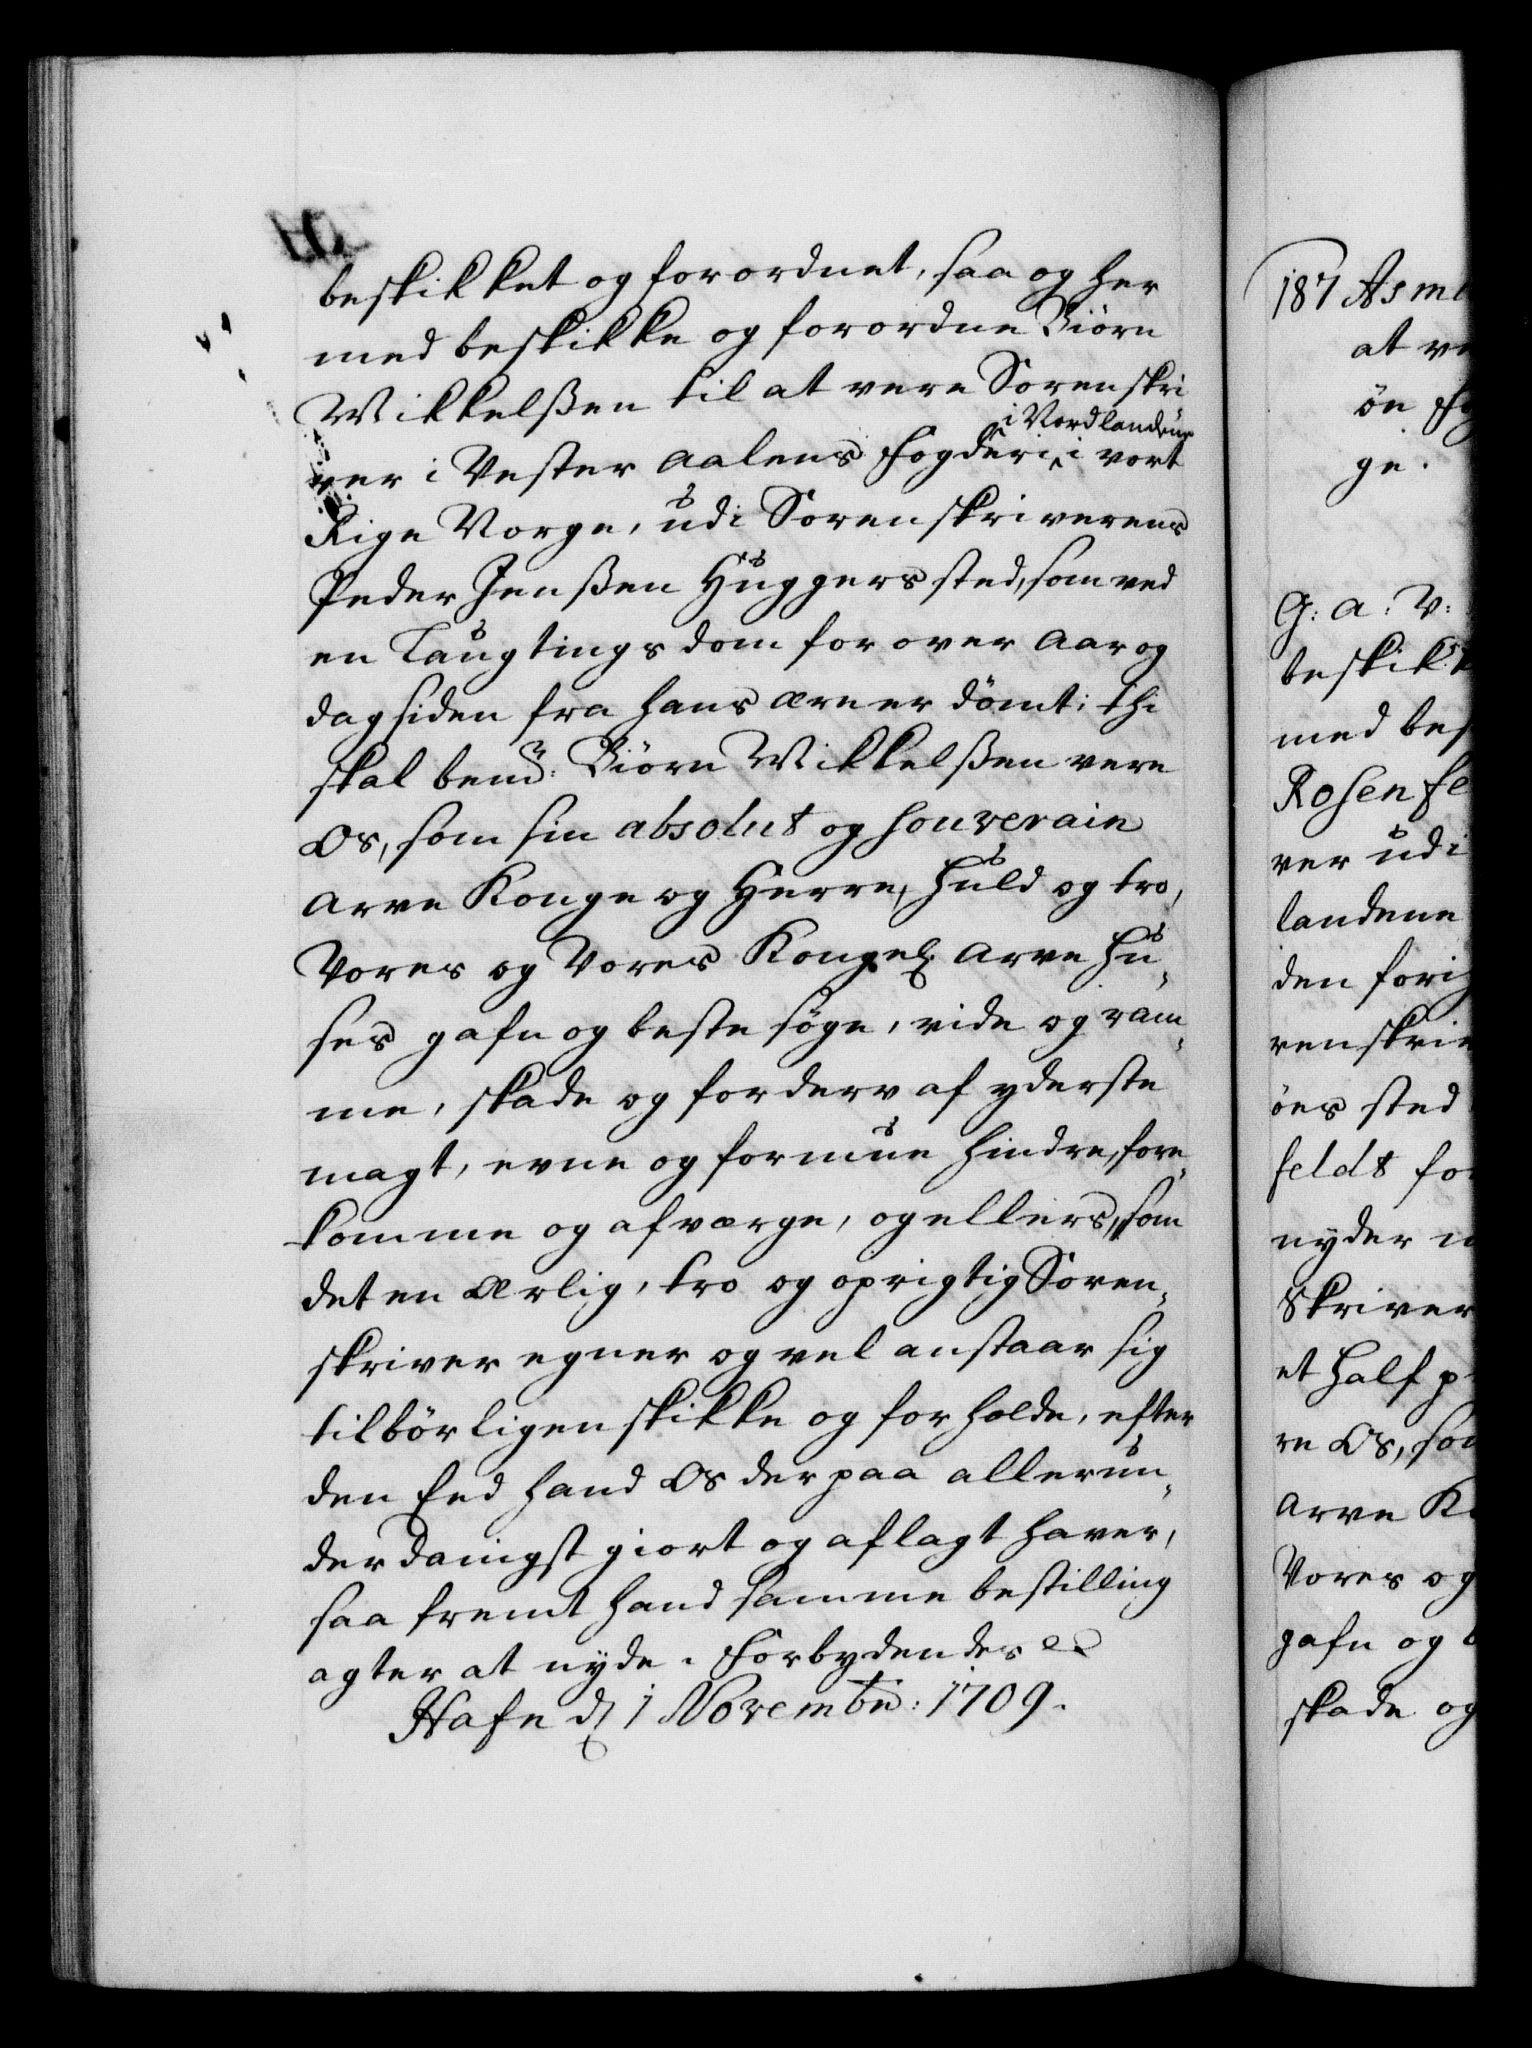 beskikket og forordnet, saa og her
med beskikke og forordne Biörn
Mikkelßen til at vere Sorenskri
i Nordlandene
ver i Vester Aalens Fogderi, i vort
Rige Norge, udi Sorenskriverens
Peder Jenßen Huggers sted, som ved
en Laugtings dom for over aar og
dag siden fra hans ære er dömt; thi
skal bemd: Biörn Mikkelßen vere
Os, som sin absolut og souverain
Arve Konge og Herre, huld og tro,
Vores og Vores Kongel. Arve Hu„
ses gafn og beste söge, vide og ram„
me, skade og forderv af yderste
magt, evne og formue hindre, fore„
komme og afværge, og ellers, som
det en ærlig, tro og oprigtig Soren„
skriver egner og vel anstaar sig
tilbörligen skikke og forholde, efter
den Eed hand Os derpaa allerun„
derdanigst giort og aflagt haver,
saa fremt hand samme bestilling
agter at nyde. Forbydendes
Hafn d. 1 Novembr: 1709.
187 Asm
at ve
ön Fo
ge.
G: A: V:
beskik
med bes
Rosenfe
ver udi
landene
den forig
renskri
öes sted
feldt fo
nyder
Skriver
et half p
re Os, som
Arve Ko
Vores og
gafn og b
skade og